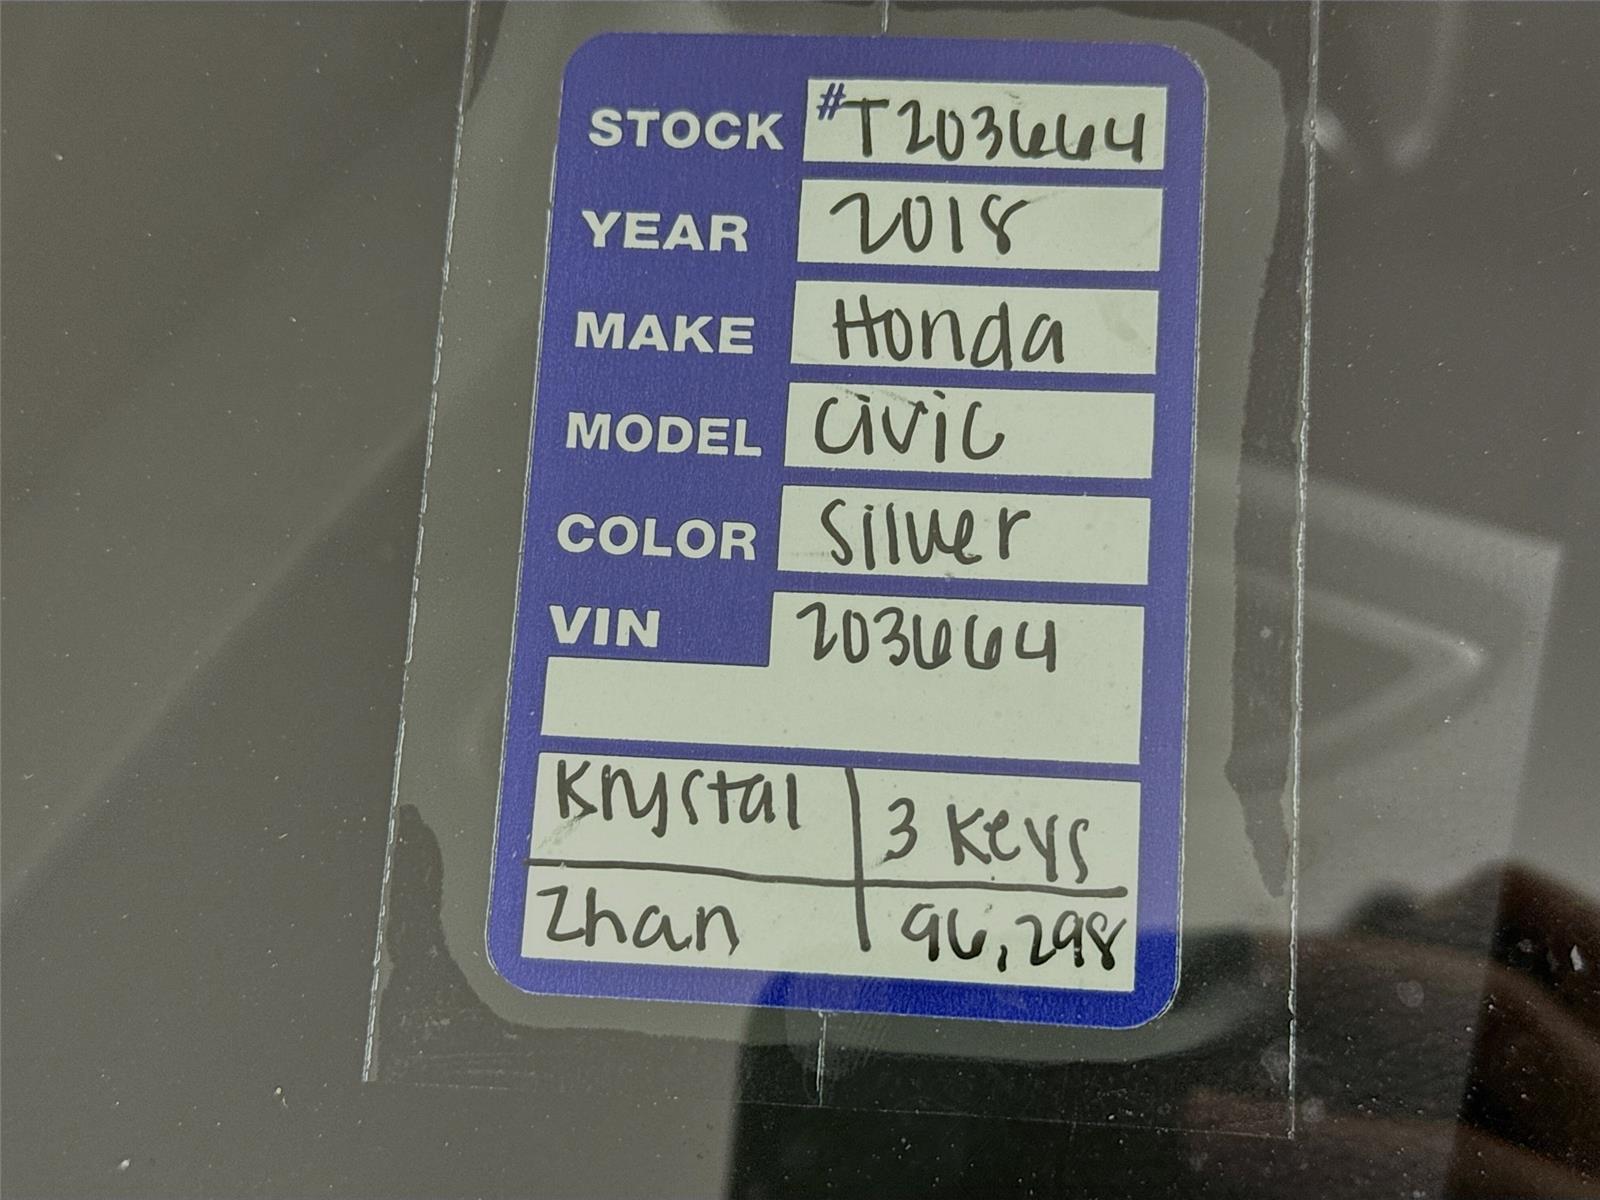 STOCK #T203664
YEAR 2018
MAKE Honda
MODEL Civic
COLOR Silver
VIN 203664
Krystal 3 Keys
Zhan 96,298